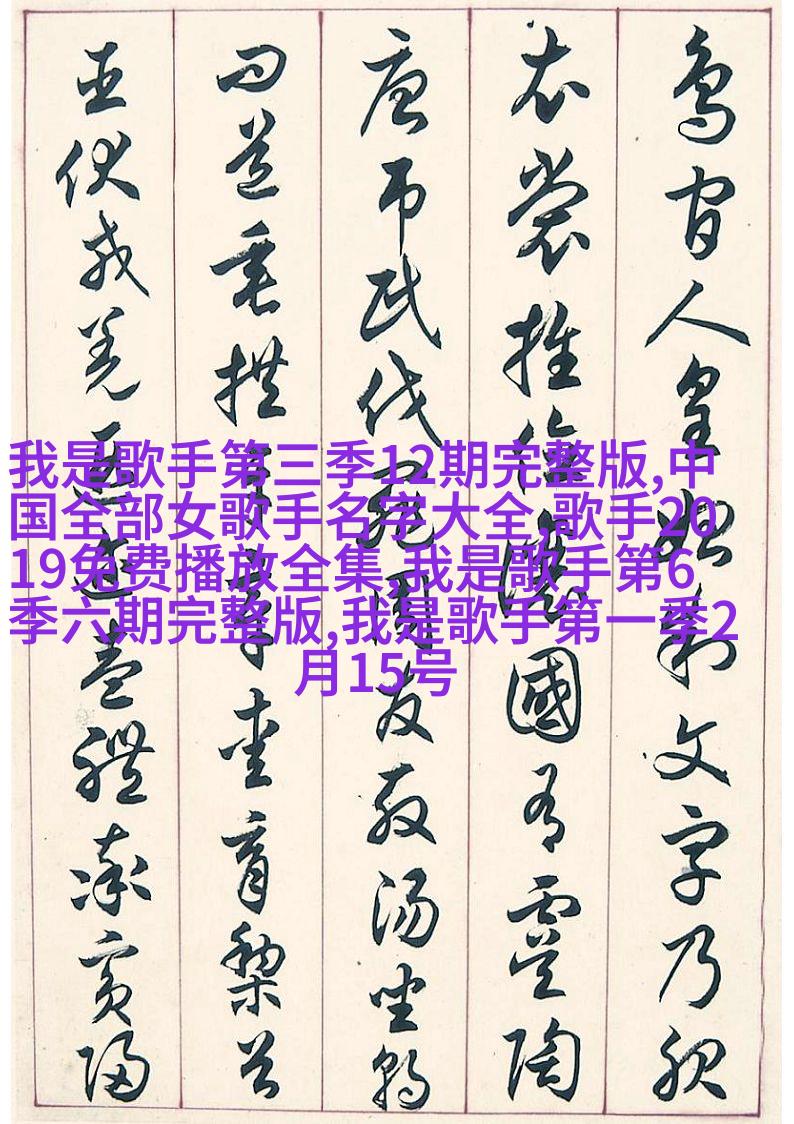 鳥官人皇始制文字乃服
衣裳推位讓國有虞陶
唐吊民伐罪周發殷湯坐朝
問道垂拱平章愛育黎首
臣伏戎羌遐邇壹體率賓歸
我是歌手第三季12期完整版,中
国全部女歌手名字大全,歌手20
19免费播放全集,我是歌手第6
季六期完整版,我是歌手第一季2
月15号